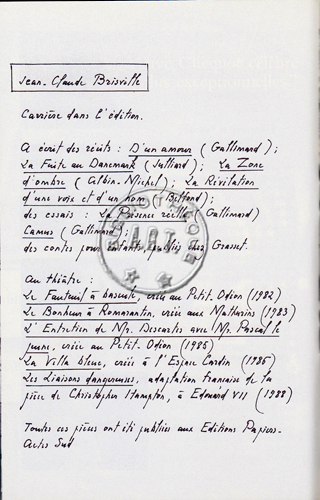 Jean-Claude Brisville
Carrière dans l'édition.
A écrit des récits : D'un amour (Gallimard) ;
La Fuite au Danemark (Julliard) ; La Zone
d'ombre (Albin-Michel) ; La Révélation
d'une voix et d'un nom (Belfond) ;
des essais : La Présence réelle (Gallimard)
Camus (Gallimard) ;
des contes pour enfants, publiés chez Grasset.
Au théâtre :
Le Fauteuil à bascule, créé au Petit-Odéon (1982)
Le Bonheur à Romorantin, créé aux Mathurins (1983)
L'Entretien de Mr. Descartes avec Mr. Pascal le
jeune, créé au Petit-Odéon (1985)
La Villa bleue, créée à l'Espace Cardin (1986)
Les Liaisons dangereuses, adaptation française de la
pièce de Christopher Hampton, à Edouard VII (1988)
Toutes ces pièces ont été publiées aux Editions Papiers-
Actes Sud